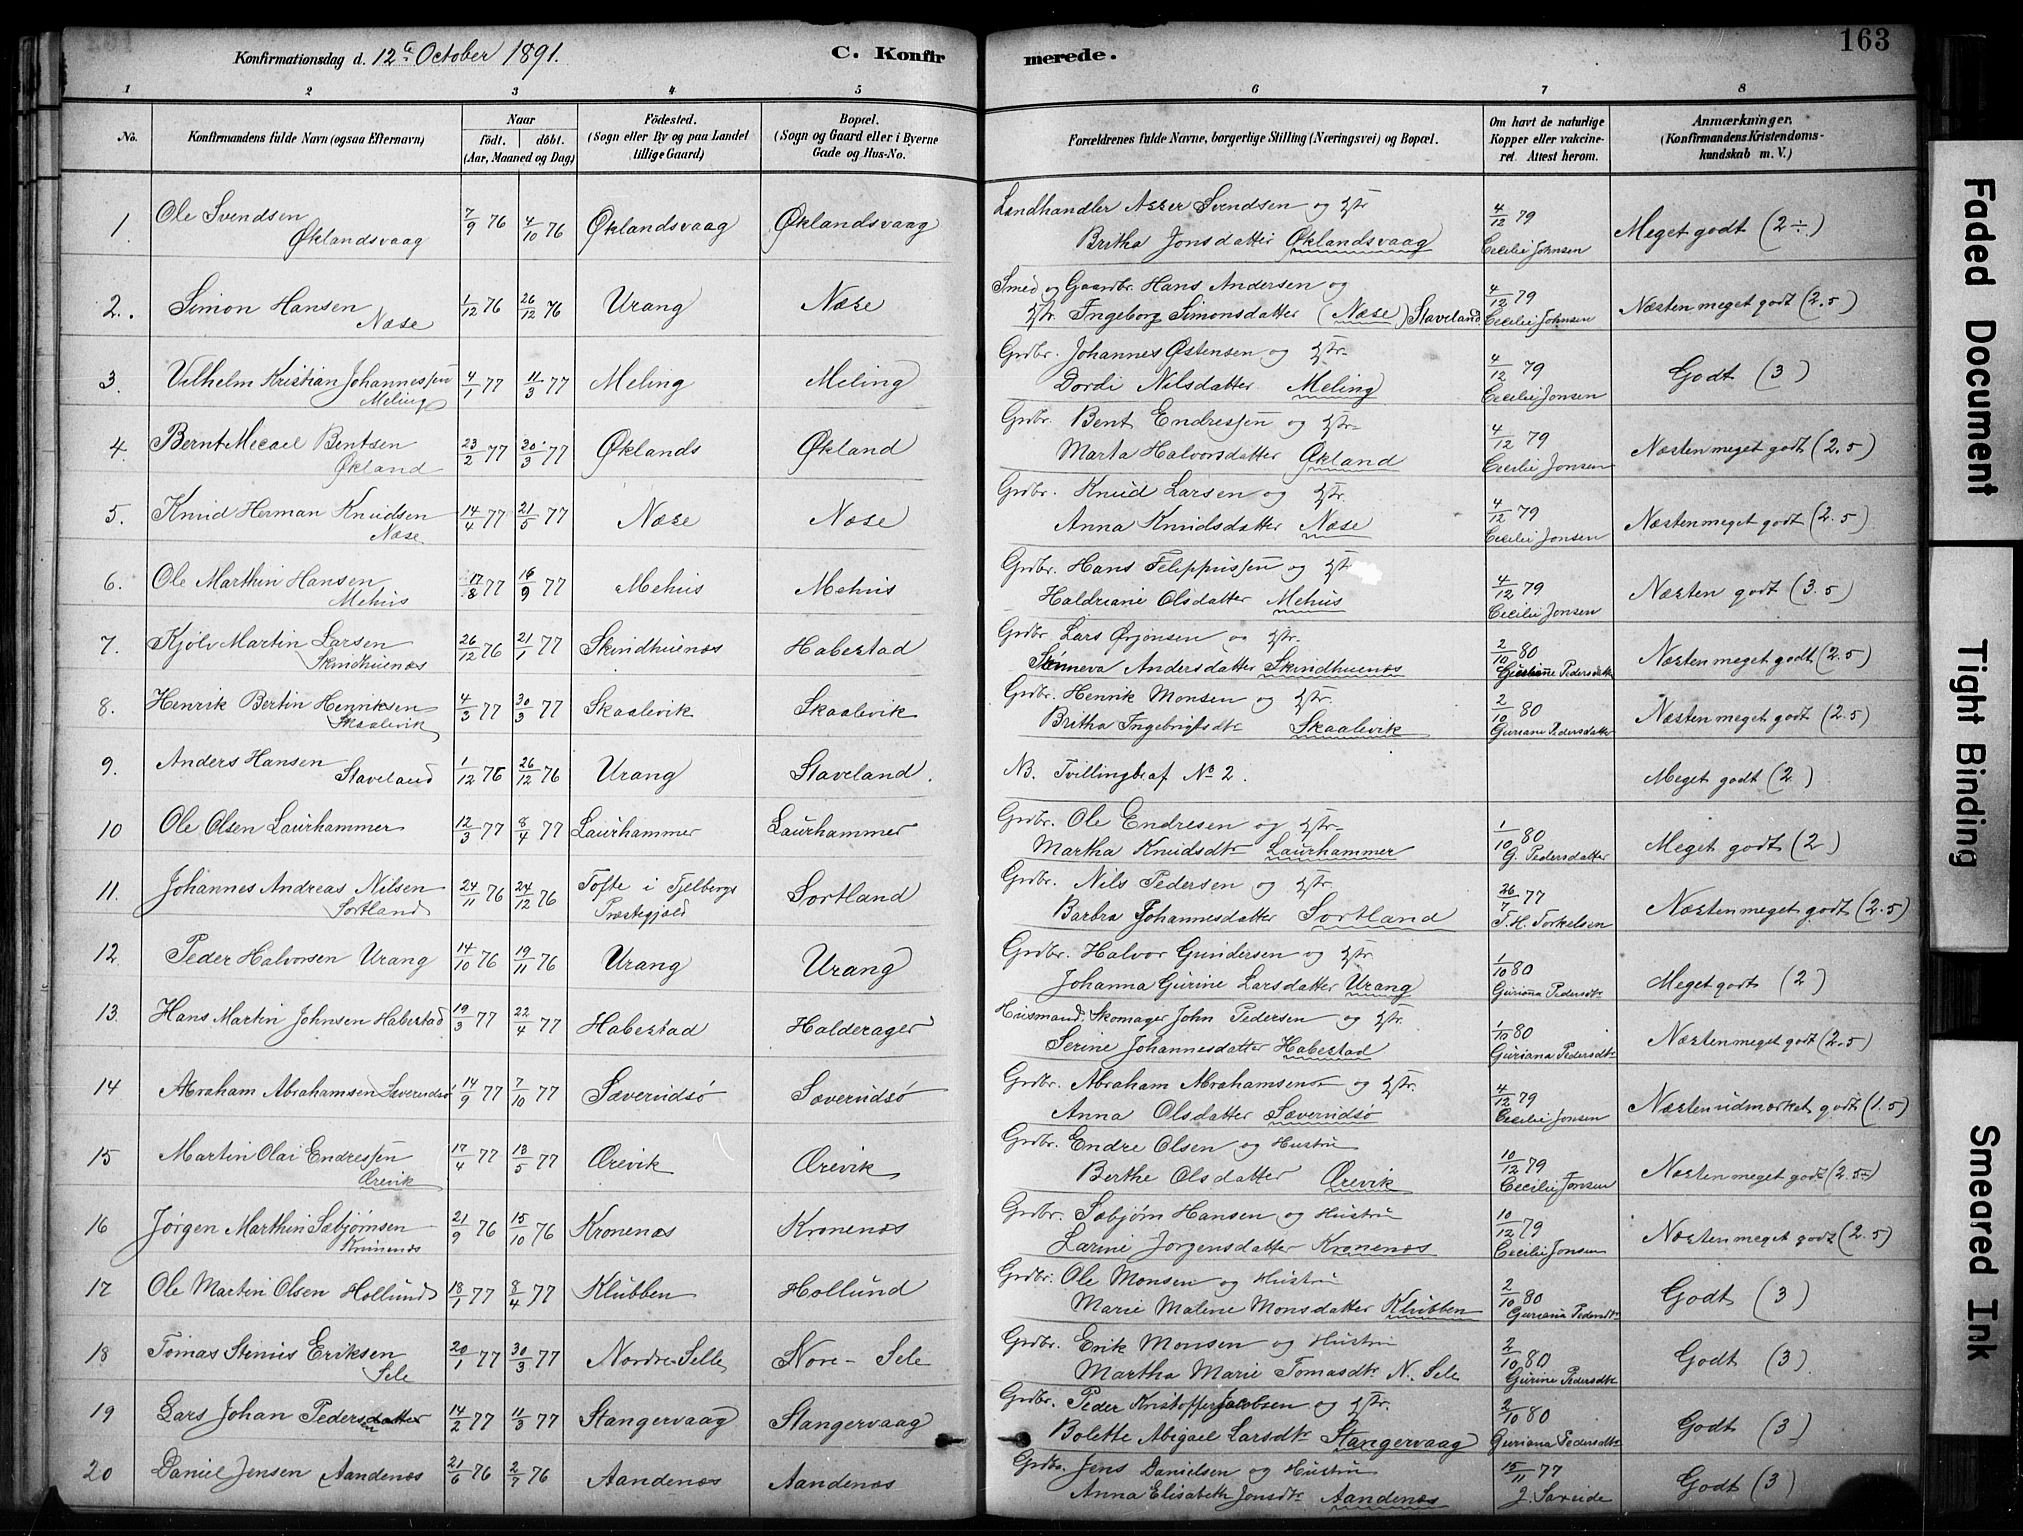 163
Konfirmationsdag d. 12te October 1891. C. Konfirmerede.
1 2 3 4 5 6 7 8
No. Konfirmandens fulde Navn (ogsaa Efternavn) Naar födt. döbt. (Aar, Maaned og Dag) Födested. (Sogn eller By og paa Landet tillige Gaard) Bopæl. (Sogn og Gaard eller i Byerne Gade og Hus-No. Forældrenes fulde Navne, borgerlige Stilling (Næringsvei) og Bopæl. Om havt de naturlige Kopper eller vakcineret. Attest herom. Anmærkninger. (Konfirmandens Kristendomskundskab m. V.)
1. Ole Svendsen Øklandsvaag 7/9 76 4/10 76 Øklandsvaag Øklandsvaag Landhandler Asser Svendsen og Hstr Britha Jonsdatter Øklandsvaag 4/12 79 Cecilie Johnsen Meget godt (2÷)
2. Simon Hansen Næse 1/12 76 26/12 76 Urang Næse Smed og Gaardbr. Hans Andersen og Hstr. Ingeborg Simonsdatter (Næse) Staveland 4/12 79 Cecilie Johnsen Næsten meget godt (2.5)
3. Vilhelm Kristian Johannessen Meling 4/1 77 11/3 77 Meling Meling Grdbr. Johannes Østensen og Hstr. Dordi Nilsdatter Meling 4/12 79 Cecilie Jonsen Godt (3)
4. Bernt Micael Bentsen Økland 23/2 77 20/3 77 Øklands Økland Grdbr. Bent Endressen og Hstr. Marta Halvorsdatter Økland 4/12 79 Cecilie Jonsen Næsten meget godt (2.5)
5. Knud Herman Knudsen Næse 14/4 77 21/5 77 Næse Næse Grdbr. Knud Larsen og Hstr. Anna Knudsdatter Næse 4/12 79 Cecilie Jonsen Næsten meget godt (2.5)
6. Ole Marthin Hansen Mehus 17/8 77 16/9 77 Mehus Mehus Grdbr. Hans Filippussen og Hstr Haldriane Olsdatter Mehus 4/12 79 Cecilie Jonsen Næsten godt (3.5)
7. Kjölv Martin Larsen Skindhuenæs 26/12 76 21/1 77 Skindhuenæs Habestad Grdbr. Lars Ørjonsen og Hstr. Sünneva Andersdatter Skindhuenæs 2/10 80 Guriane Pedersdatter Næsten meget godt (2.5)
8. Henrik Bertin Henriksen Skaalevik 4/3 77 30/3 77 Skaalevik Skaalevik Grdbr. Henrik Monsen og Hstr. Britha Ingebrigtsdtr Skaalevik 2/10 80 Guriane Pedersdatter Næsten meget godt (2.5)
9. Anders Hansen Staveland 1/12 76 26/12 76 Urang Staveland. NB. Tvillingbr. af No 2. Meget godt (2)
10 Ole Olsen Laurhammer 12/3 77 8/4 77 Laurhammer Laurhammer Grdbr. Ole Endresen og Hstr. Martha Knudsdtr Laurhammer 1/10 80 G. Pedersdatter Meget godt (2)
11. Johannes Andreas Nilsen Sortland 24/11 76 24/12 76 Tofte i Fjelbergs Præstegjæld Sortland Grdbr. Nils Pedersen og Hstr. Barbra Johannesdatter Sortland 26/7 77 T. H. Torkelsen Næsten meget godt (2.5)
12 Peder Halvorsen Urang 14/10 76 19/11 76 Urang Urang Grdbr. Halvor Gundersen og Hstr. Johanna Gurine Larsdatter Urang 1/10 80 Guriana Pedersdtr Meget godt (2)
13. Hans Martin Johnsen Habestad 19/3 77 22/4 77 Habestad Halderager Husmand, Skomager John Pedersen og Hstr. Serine Johannesdatter Habestad 1/10 80 Guriana Pedersdtr Næsten meget godt (2.5)
14 Abraham Abrahamsen Sæverudsö 14/9 77 7/10 77 Sæverudsö Sæverudsö Grdbr. Abraham Abrahamsen og Hstr. Anna Olsdatter Sæverudsö 4/12 79 Cecilie Jonsen Næsten udmærket godt (1.5)
15 Martin Olai Endressen Ærevik 17/4 77 13/5 77 Ærevik Ærevik Grdbr. Endre Olsen og Hustru Berthe Olsdatter Ærevik 10/12 79 Cecilie Jonsen Næsten meget godt (2.5÷)
16 Jørgen Marthin Sæbjørnsen Krunenæs 21/9 76 15/10 76 Kronenæs Kronenæs Grdbr. Sæbjørn Hansen og Hustru Larine Jorgensdatter Kronenæs 10/12 79 Cecilie Jonsen Næsten meget godt (2.5)
17 Ole Martin Olsen Hollund 18/1 77 8/4 77 Klubben Hollund Grdbr. Ole Monsen og Hustru Marie Malene Monsdatter Klubben 2/10 80 Guriana Pedersdtr Godt (3)
18 Tomas Stenus Eriksen Sele 20/1 77 30/3 77 Nordre-Selle Nore-Sele Grdbr. Erik Monsen og Hustru Martha Marie Tomasdtr N. Sele 2/10 80 Gurine Pedersdtr Godt (3)
19 Lars Johan Pedersdatter en 14/2 77 11/3 77 Stangervaag Stangervaag Grdbr. Peder Kristoffer Jacobsen og Hstr. Bolette Abigael Larsdtr Stangervaag 2/10 80 Guriana Pedersdtr Godt (3)
20 Daniel Jensen Aandenæs 21/6 76 2/7 76 Aandenæs Aandenæs Grdbr. Jens Danielsen og Hustru Anna Elisabeth Jonsdtr Aandenæs 15/11 77 J. Sareide Godt (3)
Faded Document
Tight Binding
Smeared Ink